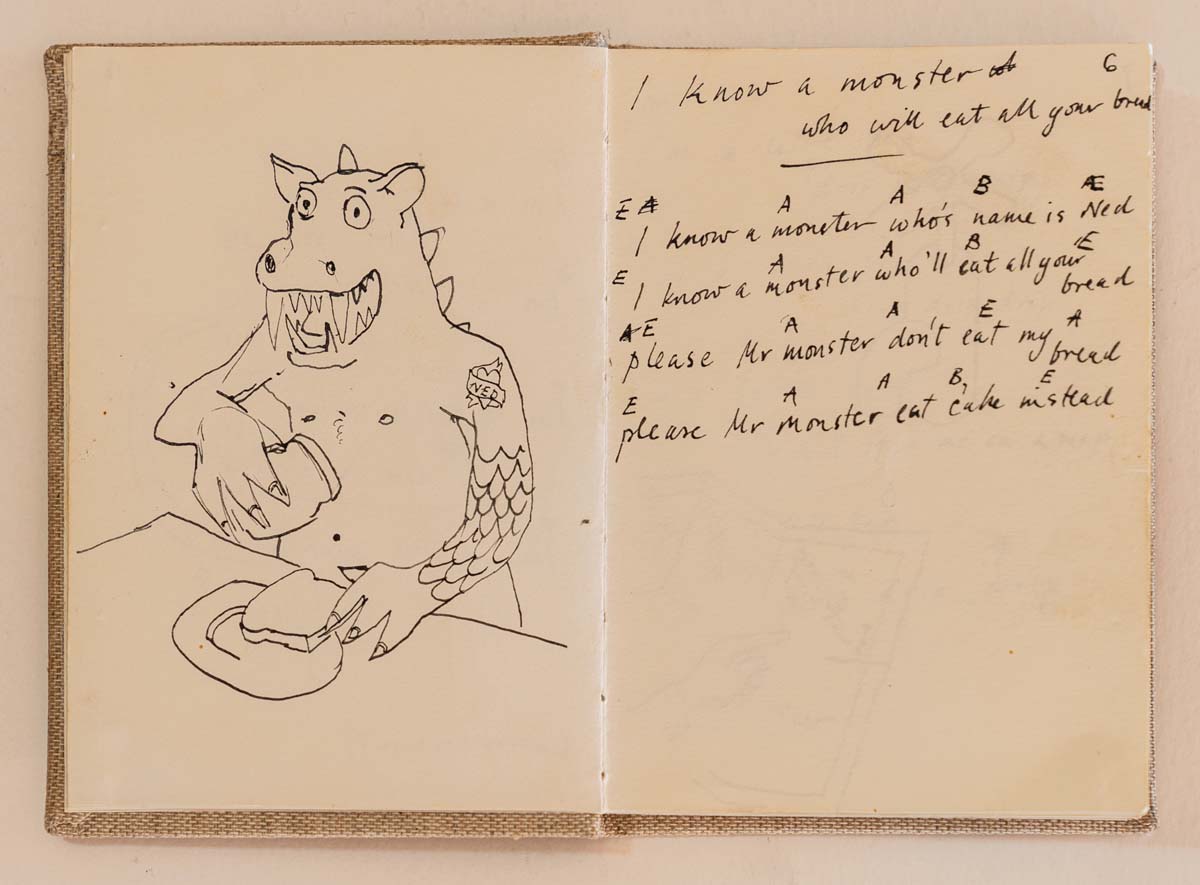 NED
6
I know a monster
who will eat all your bread
E A A A B Æ
I know a monster who's name is Ned
E A A B E
I know a monster who'll eat all your
bread
A E A A E A
please Mr monster don't eat my bread
E A A B E
please Mr monster eat cake instead